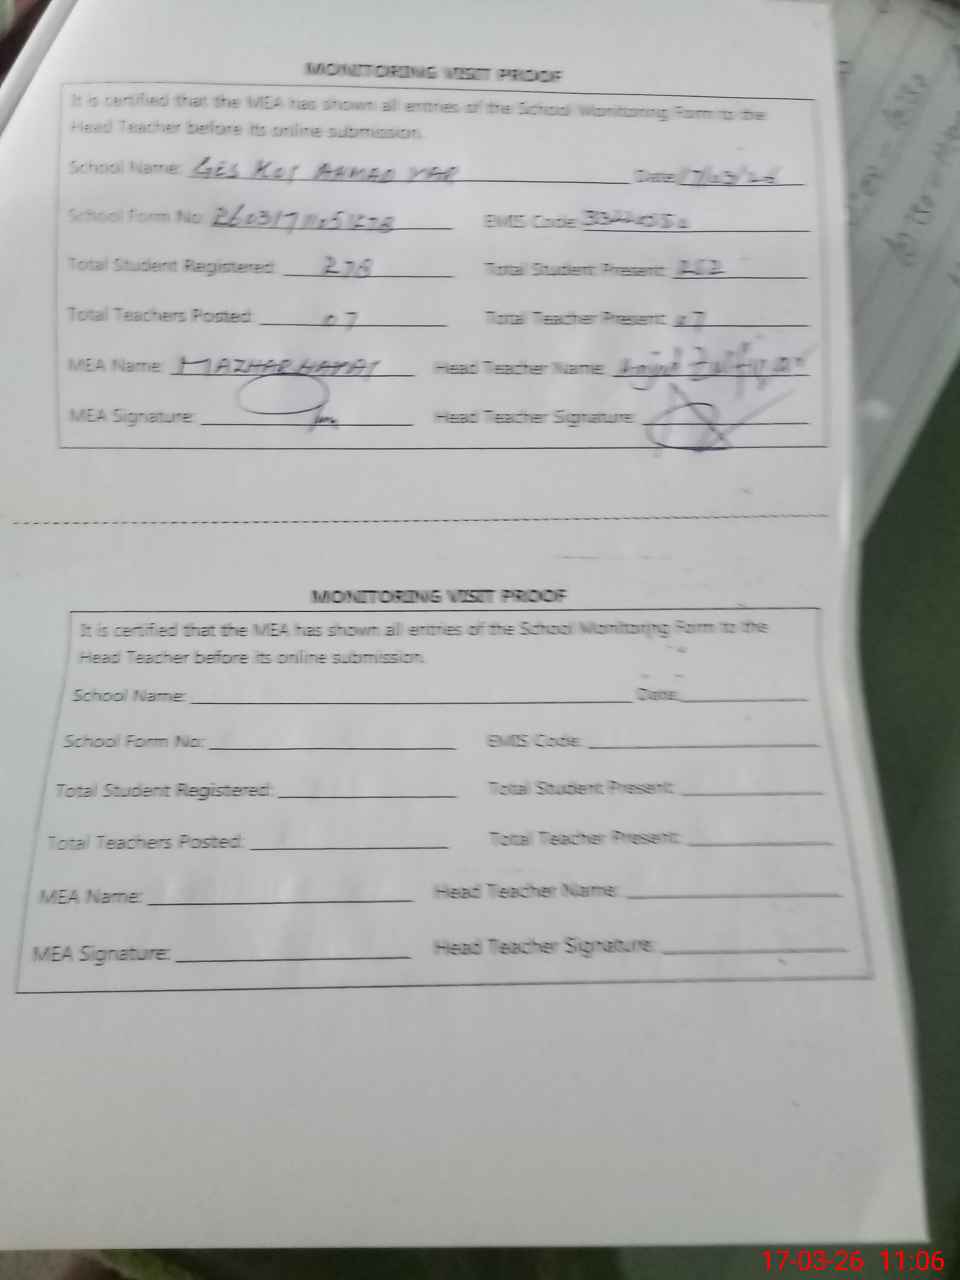 MONITORING VISIT PROOF
It is certified that the MEA has shown all entries of the School Monitoring Form to the
Head Teacher before its online submission.
School Name: GES KOT AHMED YAR Date: 17/03/26
School Form No: EMIS Code:
Total Student Registered: 278 Total Student Present: 252
Total Teachers Posted: 07 Total Teacher Present: 07
MEA Name: MAZHAR HAYAT Head Teacher Name: Zulfiqar
MEA Signature: Head Teacher Signature:
MONITORING VISIT PROOF
It is certified that the MEA has shown all entries of the School Monitoring Form to the
Head Teacher before its online submission.
School Name: Date:
School Form No: EMIS Code:
Total Student Registered: Total Student Present:
Total Teachers Posted: Total Teacher Present:
MEA Name: Head Teacher Name:
MEA Signature: Head Teacher Signature:
17-03-26 11:06